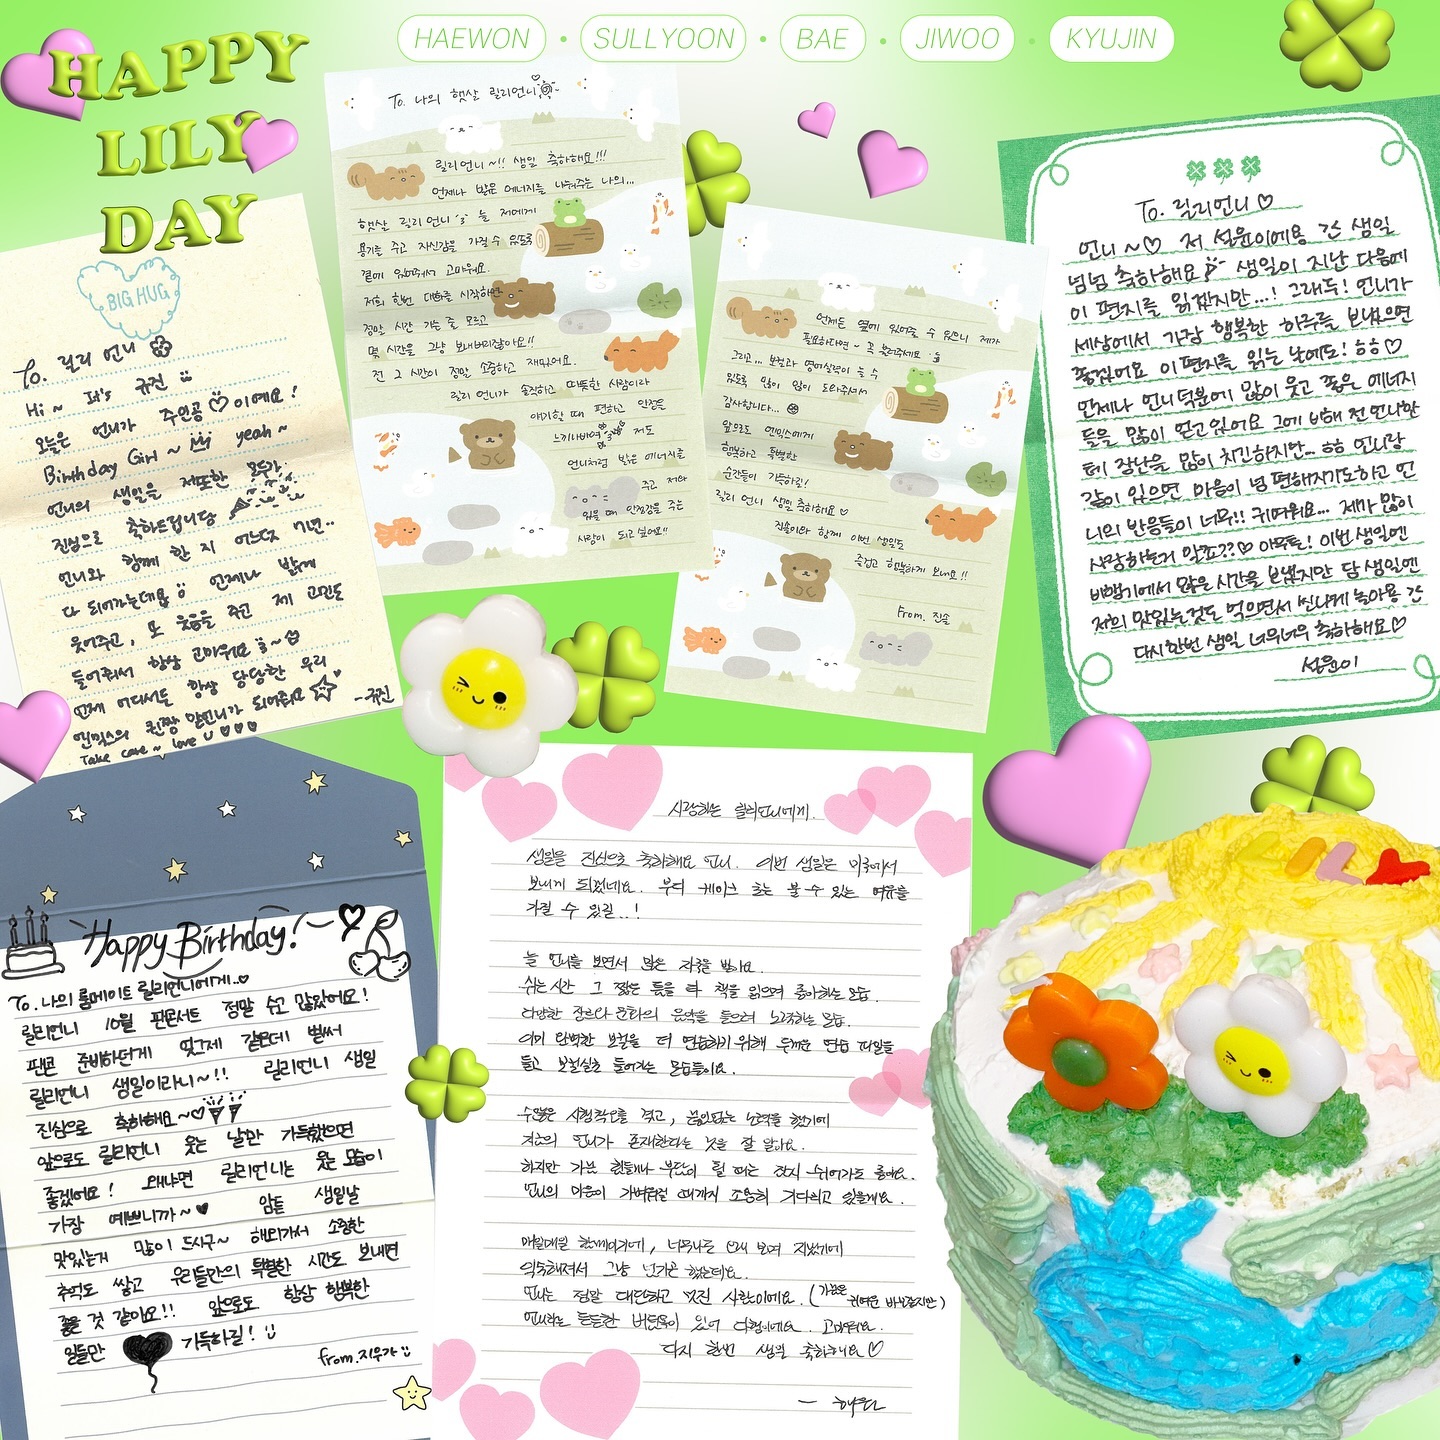 HAPPY
LILY
DAY
HAEWON • SULLYOON • BAE • JIWOO • KYUJIN
BIG HUG
To. 릴리 언니
Hi ~ It's 규진
오늘은 언니가 주인공♡이예요!
Birthday Girl ~ yeah ~
언니의 생일을 저또한
진심으로 축하드립니당
언니와 함께 한 지 어느덧 7년..
다 되어가는데요 언제나 밝게
웃어주고, 또 웃음을 주고 제 고민도
들어줘서 항상 고마워요
언제 어디서든 항상 당당한 우리
엔믹스의 킹짱 언니가 되어줘요 -규진
Take care ~ love U ♡♡♡
To. 나의 햇살 릴리언니
릴리언니~!! 생일 축하해요!!!
언제나 밝은 에너지를 나눠주는 나의...
햇살 릴리언니 늘 저에게
용기를 주고 자신감을 가질 수 있도록
곁에 있어줘서 고마워요.
저희 한번 대화를 시작하면
정말 시간 가는 줄 모르고
몇 시간을 그냥 보내버리잖아요!!
전 그 시간이 정말 소중하고 재밌어요.
릴리 언니가 솔직하고 따뜻한 사람이라
얘기할 때 편하고 안정을
느끼나봐여 저도
언니처럼 밝은 에너지를
주고 저와
있을 때 안정감을 주는
사람이 되고 싶어요!!
언제든 옆에 있어줄 수 있으니 제가
필요하다면~ 꼭 불러주세요
그리고... 보컬과 영어실력이 늘 수
있도록 많이 많이 도와주셔서
감사합니다...
앞으로도 엔믹스에게
행복하고 특별한
순간들이 가득하길!
릴리 언니 생일 축하해요♡
진솔이와 함께 이번 생일도
즐겁고 행복하게 보내요!!
From. 진솔
To. 릴리언니♡
언니~♡ 저 설윤이에용 긋 생일
넘넘 축하해요 생일이 지난 다음에
이 편지를 읽겠지만...! 그래두! 언니가
세상에서 가장 행복한 하루를 보냈으면
좋겠어요 이 편지를 읽는 날에도! ㅎㅎ♡
언제나 언니 덕분에 많이 웃고 좋은 에너지
들을 많이 얻고있어요 그에 비해 전 언니한
테 장난을 많이 치긴하지만... ㅎㅎ 언니랑
같이 있으면 마음이 넘 편해지기도하고 언
니의 반응들이 너무!! 귀여워요... 제가 많이
사랑하는거 알죠??♡ 아무튼! 이번 생일엔
비행기에서 많은 시간을 보냈지만 담 생일엔
저희 맛있는것도 먹으면서 씐나게 놀아용
다시한번 생일 너무너무 축하해요♡
설윤이
Happy Birthday!
To. 나의 룸메이트 릴리언니에게..♡
릴리언니 10월 팬콘서트 정말 수고 많았어요!
팬콘 준비하던게 엊그제 같은데 벌써
릴리언니 생일이라니~!! 릴리언니 생일
진심으로 축하해요~♡
앞으로도 릴리언니 웃는 날만 가득했으면
좋겠어요! 왜냐면 릴리언니는 웃는 모습이
가장 예쁘니까~♥ 암튼 생일날
맛있는거 많이 드시구~ 해외가서 소중한
추억도 쌓고 우리들만의 특별한 시간도 보내면
좋을 것 같아요!! 앞으로도 항상 행복한
일들만 가득하길!
from.지우가
사랑하는 릴리언니에게.
생일을 진심으로 축하해요 언니. 이번 생일은 미국에서
보내게 되었네요. 부디 케이크 초는 불 수 있는 여유를
가질 수 있길..!
늘 언니를 보면서 많은 자극을 받아요.
쉬는시간 그 짧은 틈을 타 책을 읽으며 좋아하는 모습.
다양한 장르와 문화의 음악을 들으며 노래하는 모습.
이미 완벽한 보컬을 더 연습하기 위해 두꺼운 연습 파일을
들고 보컬실로 들어가는 모습들이요.
수많은 시행착오를 겪고, 끊임없는 노력을 했기에
지금의 언니가 존재한다는 것을 잘 알아요.
하지만 가끔 힘들거나 부담이 될 때는 잠시 쉬어가도 좋아요.
언니의 마음이 가벼워질 때까지 조용히 기다리고 있을게요.
매일매일 함께이기에, 너무나도 오래 보여 지냈기에
익숙해져서 그냥 넘기곤 했는데요.
언니는 정말 대단하고 멋진 사람이에요. (가끔은 귀여운 바보같지만)
언니라는 든든한 버팀목이 있어 다행이에요. 고마워요.
다시 한번 생일 축하해요♡
— 해원
LILY